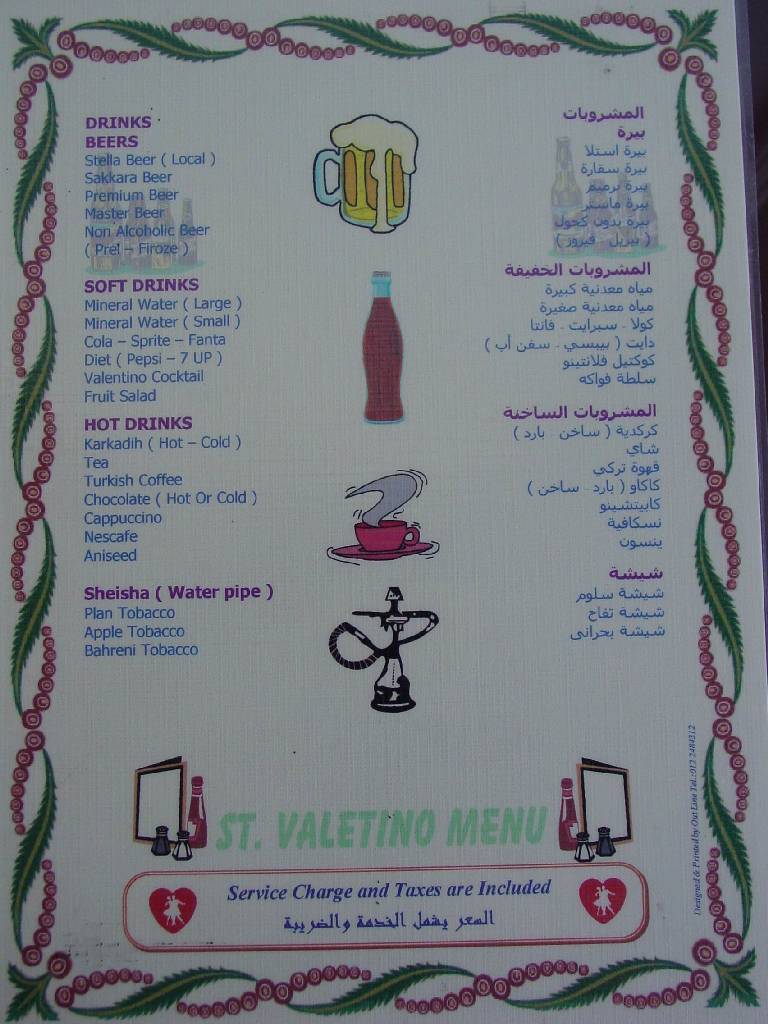 DRINKS
BEERS
Stella Beer ( Local )
Sakkara Beer
Premium Beer
Master Beer
Non Alcoholic Beer
( Prel – Firoze )
SOFT DRINKS
Mineral Water ( Large )
Mineral Water ( Small )
Cola – Sprite – Fanta
Diet ( Pepsi – 7 UP )
Valentino Cocktail
Fruit Salad
HOT DRINKS
Karkadih ( Hot – Cold )
Tea
Turkish Coffee
Chocolate ( Hot Or Cold )
Cappuccino
Nescafe
Aniseed
Sheisha ( Water pipe )
Plan Tobacco
Apple Tobacco
Bahreni Tobacco
المشروبات
بيرة
بيرة استلا
بيرة سقارة
بيرة برميم
بيرة ماستر
بيرة بدون كحول
( بيريل - فيروز )
المشروبات الخفيفة
مياه معدنية كبيرة
مياه معدنية صغيرة
كولا - سبرايت - فانتا
دايت ( بيبسي - سفن أب )
كوكتيل فلانتينو
سلطة فواكه
المشروبات الساخنة
كركدية ( ساخن - بارد )
شاي
قهوة تركي
كاكاو ( بارد - ساخن )
كابيتشينو
نسكافية
ينسون
شيشة
شيشة سلوم
شيشة تفاح
شيشة بحرانى
ST. VALETINO MENU
Service Charge and Taxes are Included
السعر يشمل الخدمة والضريبة
Designed & Printed by Out Line Tel.:012 2484312